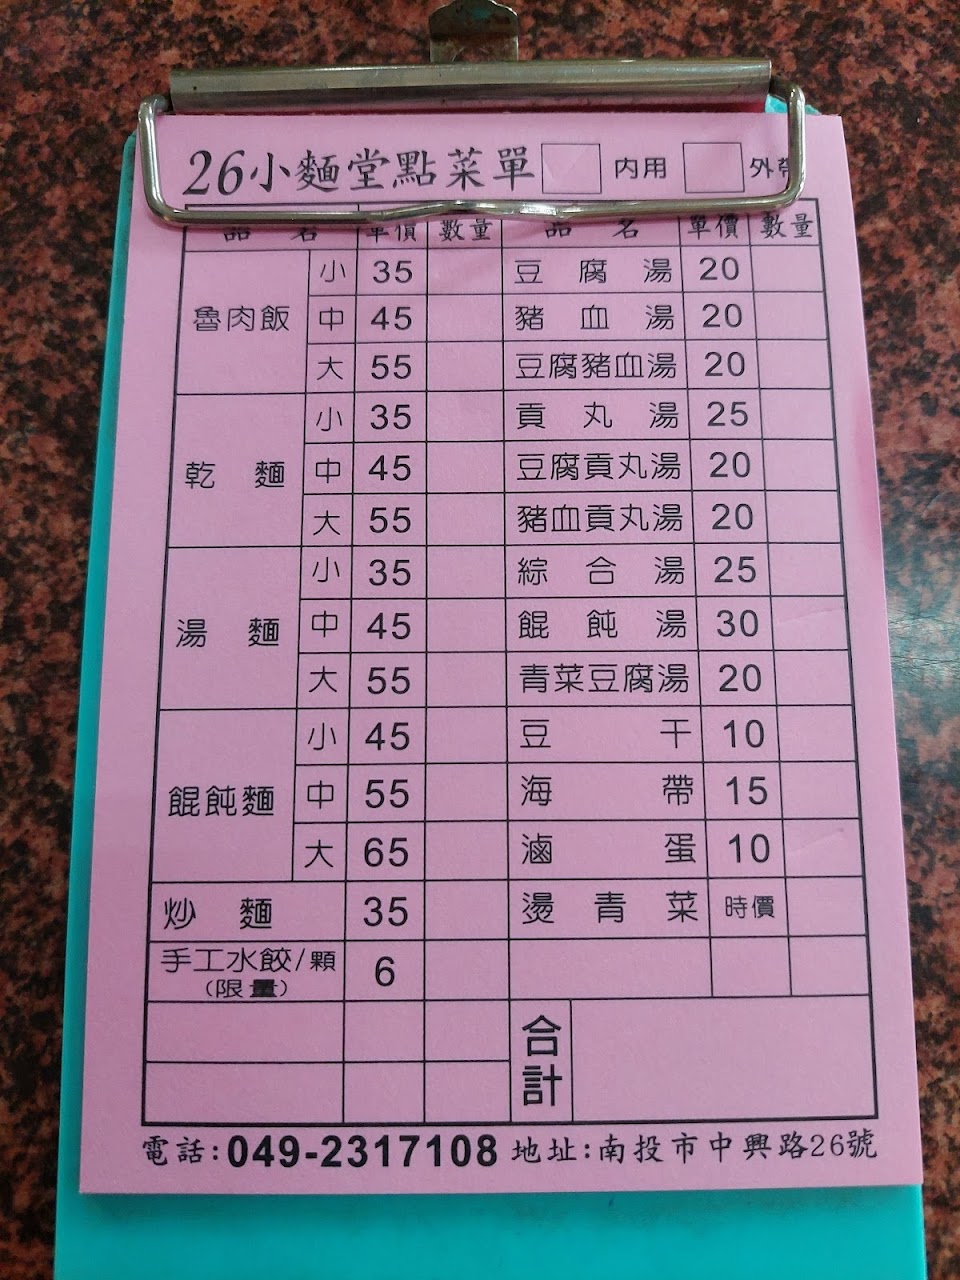 26小麵堂點菜單 內用 外帶
品 名 單價 數量 品 名 單價 數量
魯肉飯 小 35 豆腐湯 20
中 45 豬血湯 20
大 55 豆腐豬血湯 20
乾麵 小 35 貢丸湯 25
中 45 豆腐貢丸湯 20
大 55 豬血貢丸湯 20
湯麵 小 35 綜合湯 25
中 45 餛飩湯 30
大 55 青菜豆腐湯 20
餛飩麵 小 45 豆干 10
中 55 海帶 15
大 65 滷蛋 10
炒麵 35 燙青菜 時價
手工水餃/顆 6
(限量)
合計
電話:049-2317108 地址:南投市中興路26號